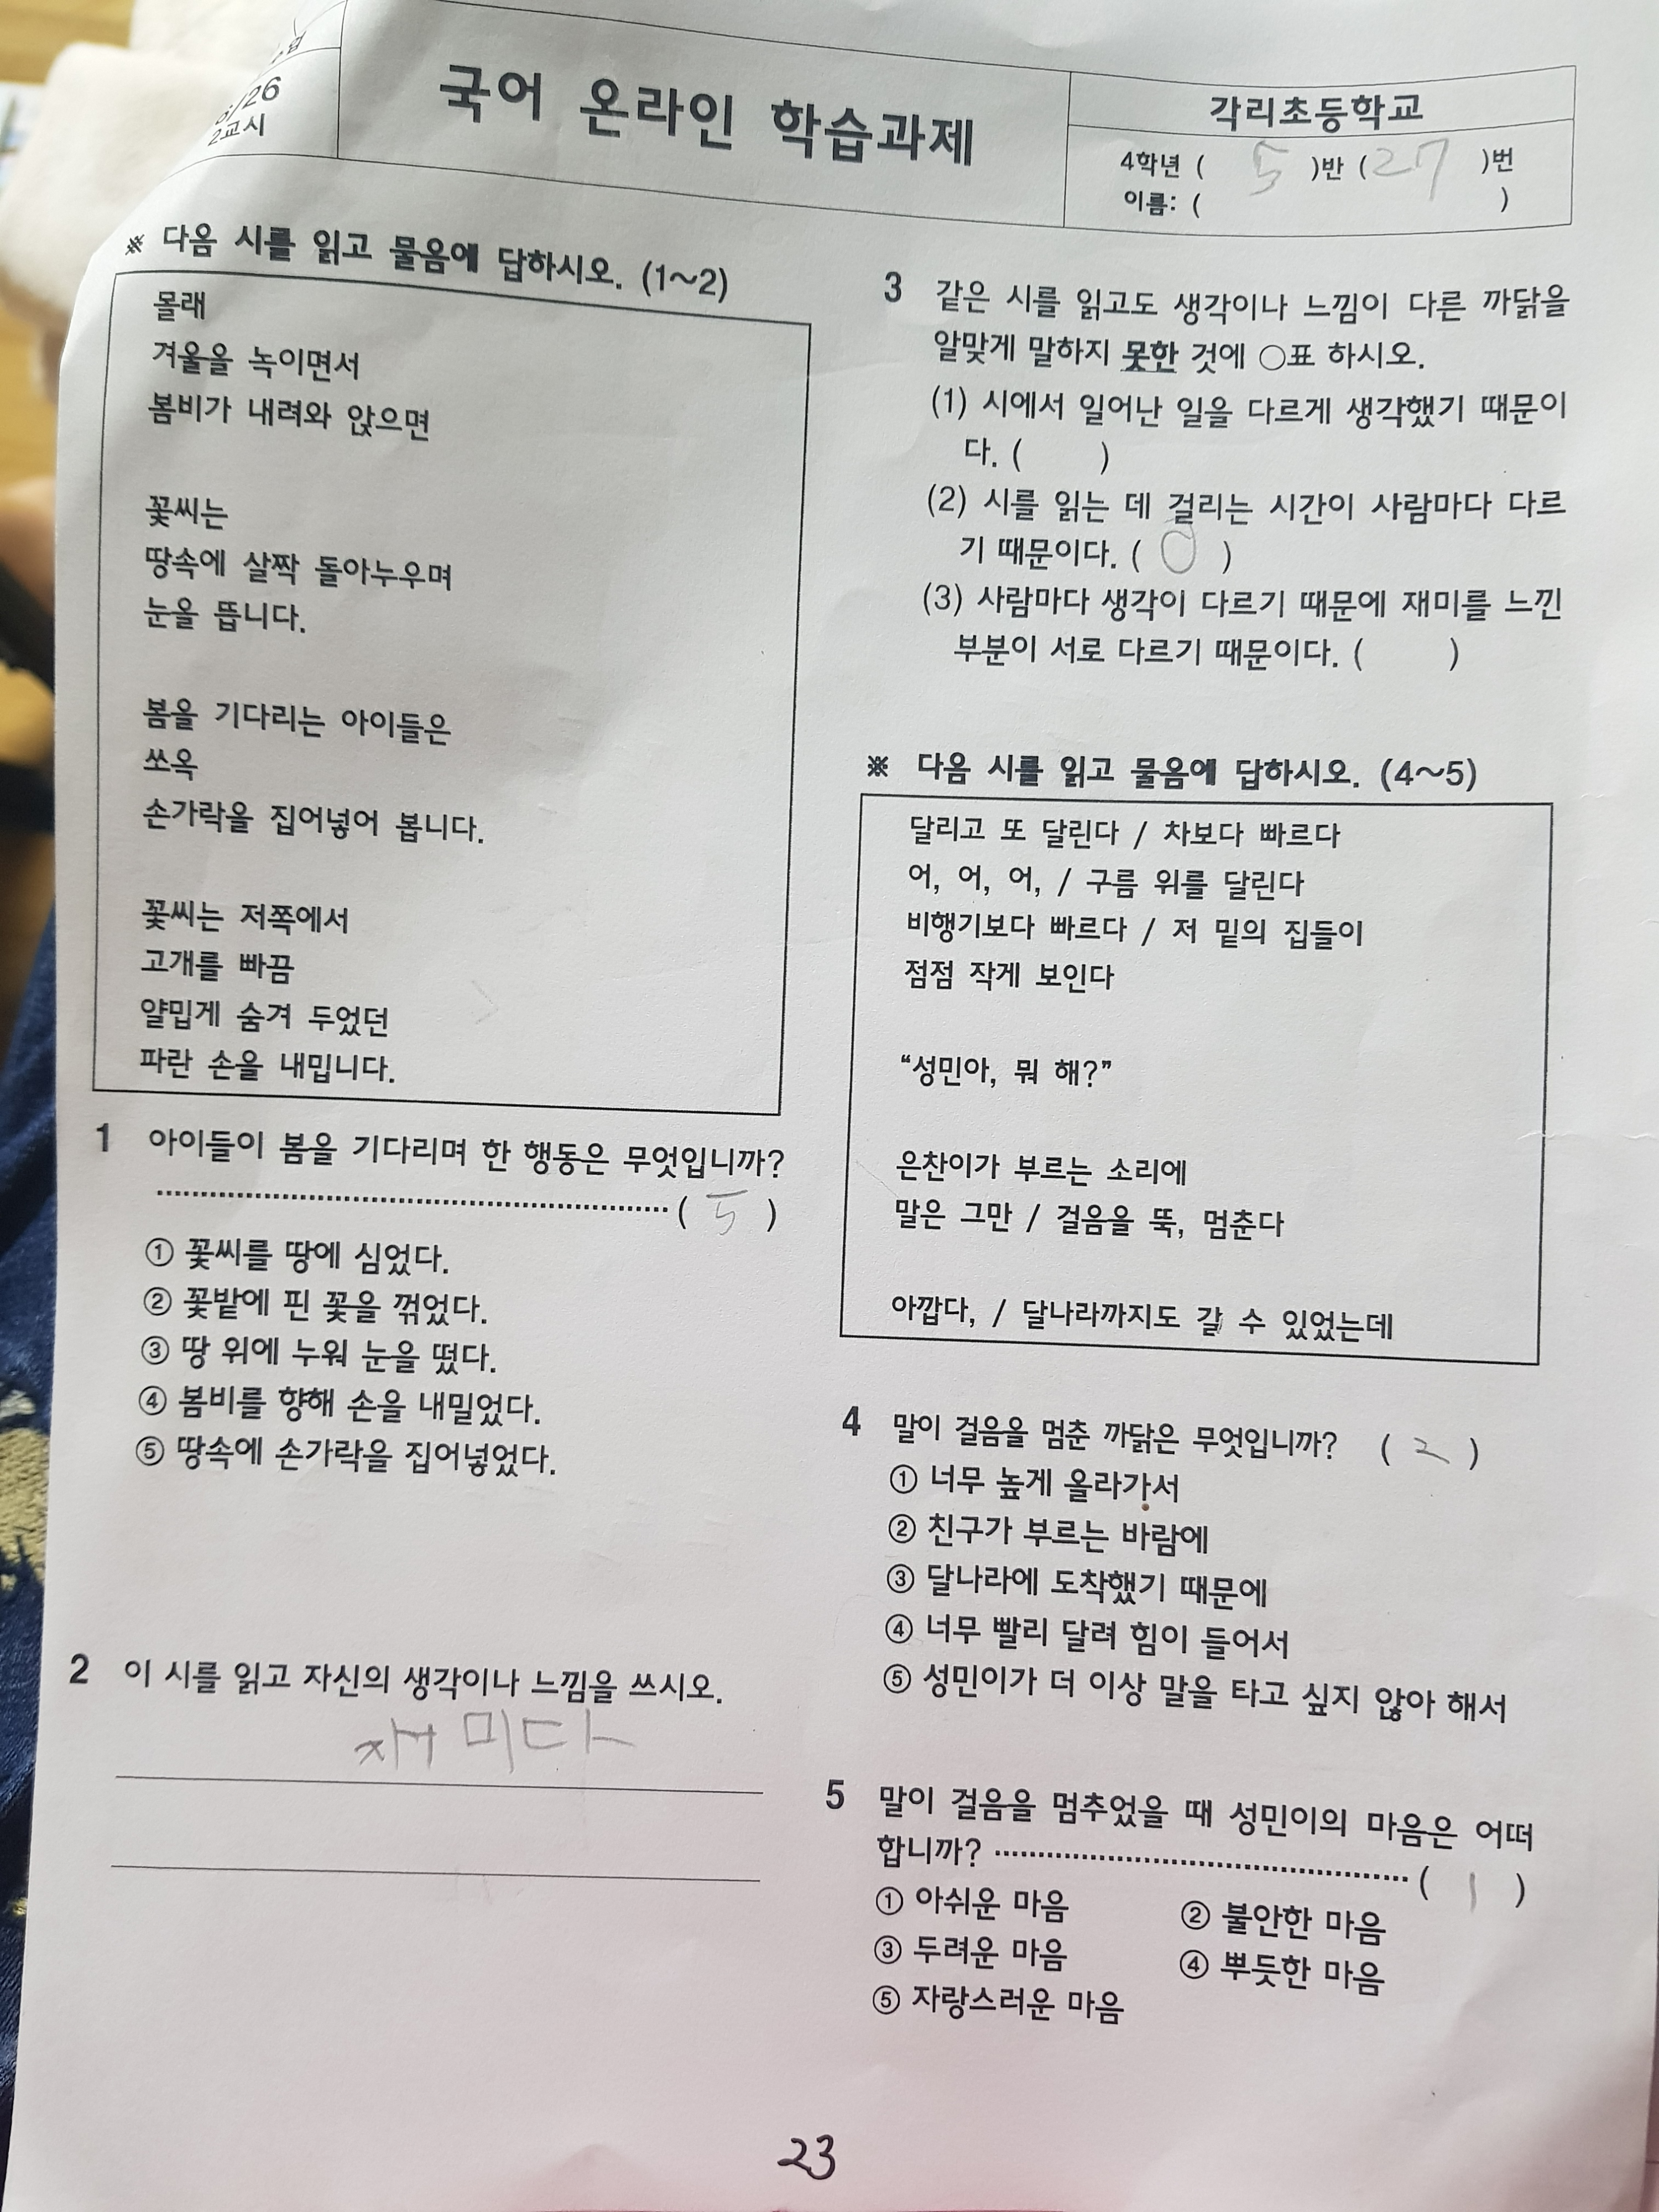 /26
2교시
국어 온라인 학습과제
각리초등학교
4학년 ( 5 )반 ( 27 )번
이름: ( )
※ 다음 시를 읽고 물음에 답하시오. (1~2)
몰래
겨울을 녹이면서
봄비가 내려와 앉으면
꽃씨는
땅속에 살짝 돌아누우며
눈을 뜹니다.
봄을 기다리는 아이들은
쏘옥
손가락을 집어넣어 봅니다.
꽃씨는 저쪽에서
고개를 빠끔
얄밉게 숨겨 두었던
파란 손을 내밉니다.
1 아이들이 봄을 기다리며 한 행동은 무엇입니까?
( 5 )
① 꽃씨를 땅에 심었다.
② 꽃밭에 핀 꽃을 꺾었다.
③ 땅 위에 누워 눈을 떴다.
④ 봄비를 향해 손을 내밀었다.
⑤ 땅속에 손가락을 집어넣었다.
2 이 시를 읽고 자신의 생각이나 느낌을 쓰시오.
재미다
3 같은 시를 읽고도 생각이나 느낌이 다른 까닭을
알맞게 말하지 못한 것에 ○표 하시오.
(1) 시에서 일어난 일을 다르게 생각했기 때문이
다. ( )
(2) 시를 읽는 데 걸리는 시간이 사람마다 다르
기 때문이다. ( O )
(3) 사람마다 생각이 다르기 때문에 재미를 느낀
부분이 서로 다르기 때문이다. ( )
※ 다음 시를 읽고 물음에 답하시오. (4~5)
달리고 또 달린다 / 차보다 빠르다
어, 어, 어, / 구름 위를 달린다
비행기보다 빠르다 / 저 밑의 집들이
점점 작게 보인다
“성민아, 뭐 해?”
은찬이가 부르는 소리에
말은 그만 / 걸음을 뚝, 멈춘다
아깝다, / 달나라까지도 갈 수 있었는데
4 말이 걸음을 멈춘 까닭은 무엇입니까? ( 2 )
① 너무 높게 올라가서
② 친구가 부르는 바람에
③ 달나라에 도착했기 때문에
④ 너무 빨리 달려 힘이 들어서
⑤ 성민이가 더 이상 말을 타고 싶지 않아 해서
5 말이 걸음을 멈추었을 때 성민이의 마음은 어떠
합니까? ( 1 )
① 아쉬운 마음 ② 불안한 마음
③ 두려운 마음 ④ 뿌듯한 마음
⑤ 자랑스러운 마음
23